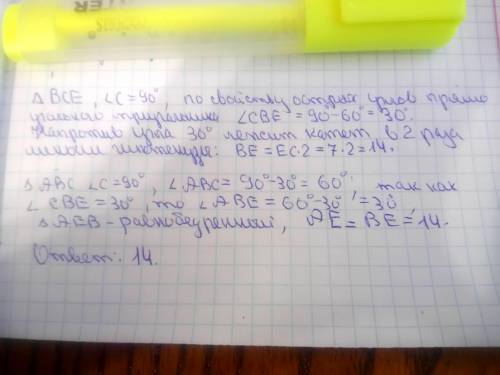 Δ BCE, ∠C=90°, по свойству острых углов прямо
угольного треугольника ∠CBE = 90-60°=30°.
Напротив угла 30° лежит катет, в 2 раза
меньше гипотенузы: BE=EC·2=7·2=14.
Δ ABC ∠C=90°, ∠ABC= 90°-30°= 60°, так как
∠ CBE=30°, то ∠ABE= 60°-30°=30°,
Δ AEB-равнобедренный, AE=BE=14.
Ответ: 14.